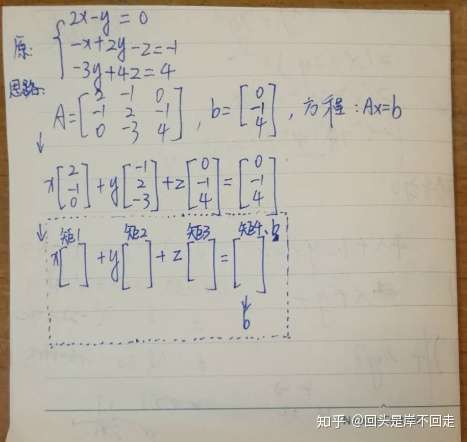 原: { 2x-y=0
-x+2y-z=-1
-3y+4z=4
思路:
A=[2 -1 0; -1 2 -1; 0 -3 4], b=[0; -1; 4], 方程:Ax=b
↓
x[2; -1; 0]+y[-1; 2; -3]+z[0; -1; 4]=[0; -1; 4]
↓ 矩1 矩2 矩3 矩4、b
x[ ]+y[ ]+z[ ]=[ ]
↓
b
知乎 @回头是岸不回走